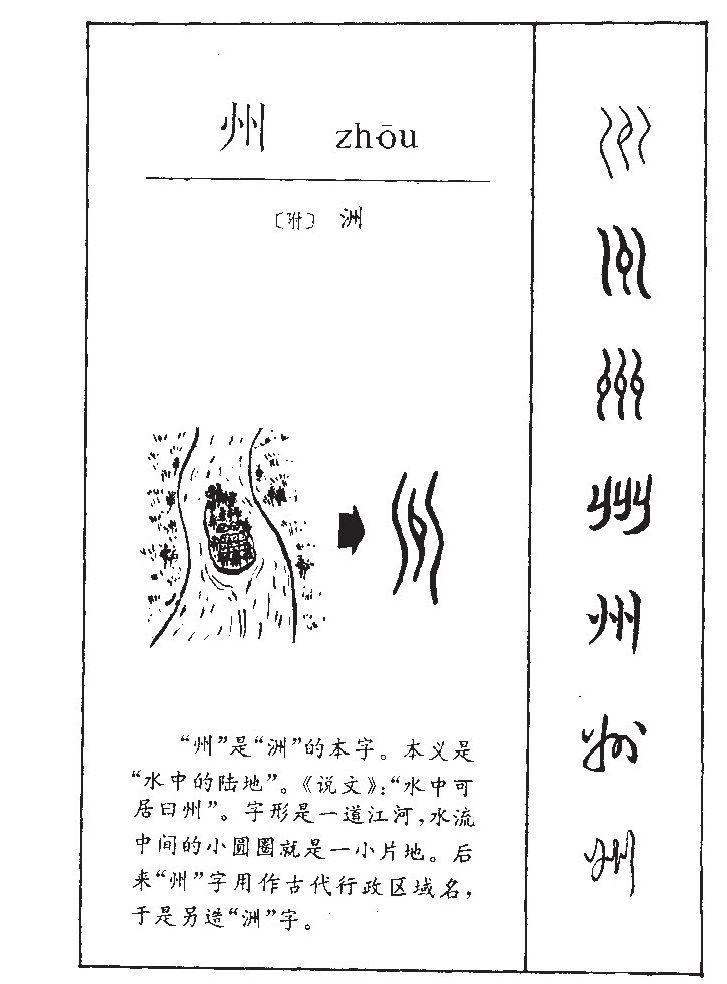 州 zhōu
〔附〕 洲
“州”是“洲”的本字。本义是
“水中的陆地”。《说文》：“水中可
居曰州”。字形是一道江河，水流
中间的小圆圈就是一小片地。后
来“州”字用作古代行政区域名，
于是另造“洲”字。
州
州
州
州
州
州
州